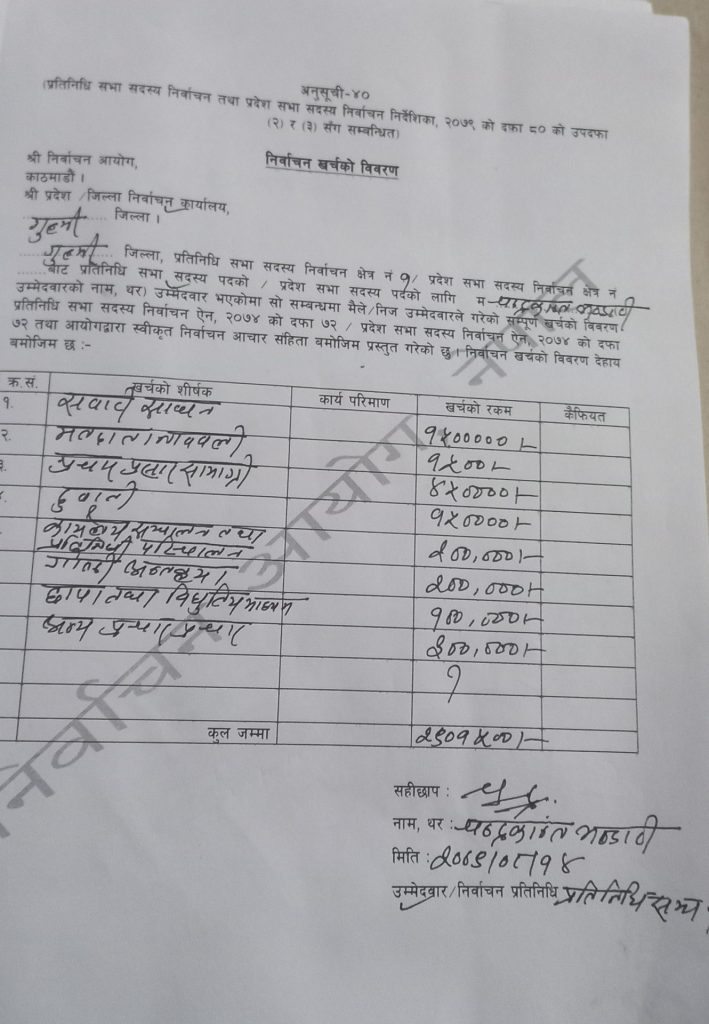 अनुसूची-४०
(प्रतिनिधि सभा सदस्य निर्वाचन तथा प्रदेश सभा सदस्य निर्वाचन निर्देशिका, २०७९ को दफा ८० को उपदफा
(२) र (३) सँग सम्बन्धित)
निर्वाचन खर्चको विवरण
श्री निर्वाचन आयोग,
काठमाडौं ।
श्री प्रदेश /जिल्ला निर्वाचन कार्यालय,
गुल्मी जिल्ला ।
गुल्मी जिल्ला, प्रतिनिधि सभा सदस्य निर्वाचन क्षेत्र नं १/ प्रदेश सभा सदस्य निर्वाचन क्षेत्र नं
........बाट प्रतिनिधि सभा सदस्य पदको / प्रदेश सभा सदस्य पदको लागि म चन्द्रकान्त भण्डारी
उम्मेदवारको नाम, थर) उम्मेदवार भएकोमा सो सम्बन्धमा मैले/निज उम्मेदवारले गरेको सम्पूर्ण खर्चको विवरण
प्रतिनिधि सभा सदस्य निर्वाचन ऐन, २०७४ को दफा ७२ / प्रदेश सभा सदस्य निर्वाचन ऐन, २०७४ को दफा
७२ तथा आयोगद्वारा स्वीकृत निर्वाचन आचार संहिता बमोजिम प्रस्तुत गरेको छु । निर्वाचन खर्चको विवरण देहाय
बमोजिम छ :-
क्र.सं. खर्चको शीर्षक कार्य परिमाण खर्चको रकम कैफियत
१. सवारी साधन १५०००००।-
२. मतदाता नामावली १५००।-
३. प्रचार प्रसार सामाग्री ४५००००।-
१५००००।-
कार्यालय सञ्चालन तथा
प्रतिनिधी परिचालन २००,०००।-
२००,०००।-
छापा तथा विधुतिय माध्यम १००,०००।-
अन्य प्रचार प्रसार
कुल जम्मा
सहीछाप :
नाम, थर : चन्द्रकान्त भण्डारी
मिति : २०७९/०८/१४
उम्मेदवार/निर्वाचन प्रतिनिधि प्रतिनिधि सभा
निर्वाचन आयोग, नेपाल